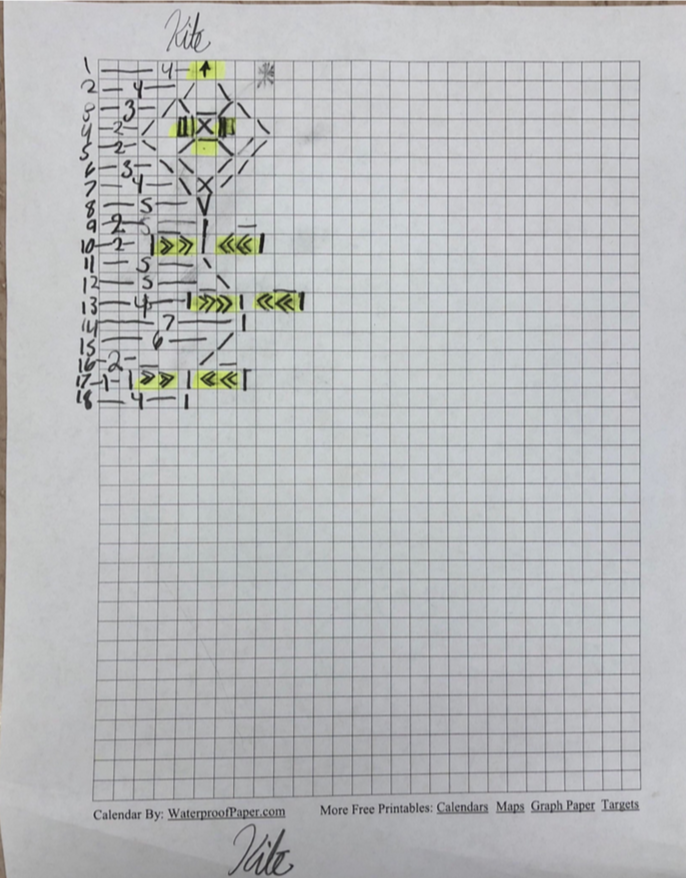 Kite
1 — 4 — ↑
2 — 4 — / \
3 — 3 —
4 — 2 — X
5 — 2 —
6 — 3 —
7 — 4 — \ X /
8 — 5 — V
9 2 5 — |
10 — 2 — | >> >> | << << |
11 — 5 — \
12 — 5 — \
13 — 4 — | >> >> | << << |
14 — 7 — |
15 — 6 — /
16 — 2 — /
17 — 1 — | >> >> | << << |
18 — 4 — |
Calendar By: WaterproofPaper.com More Free Printables: Calendars Maps Graph Paper Targets
Kite